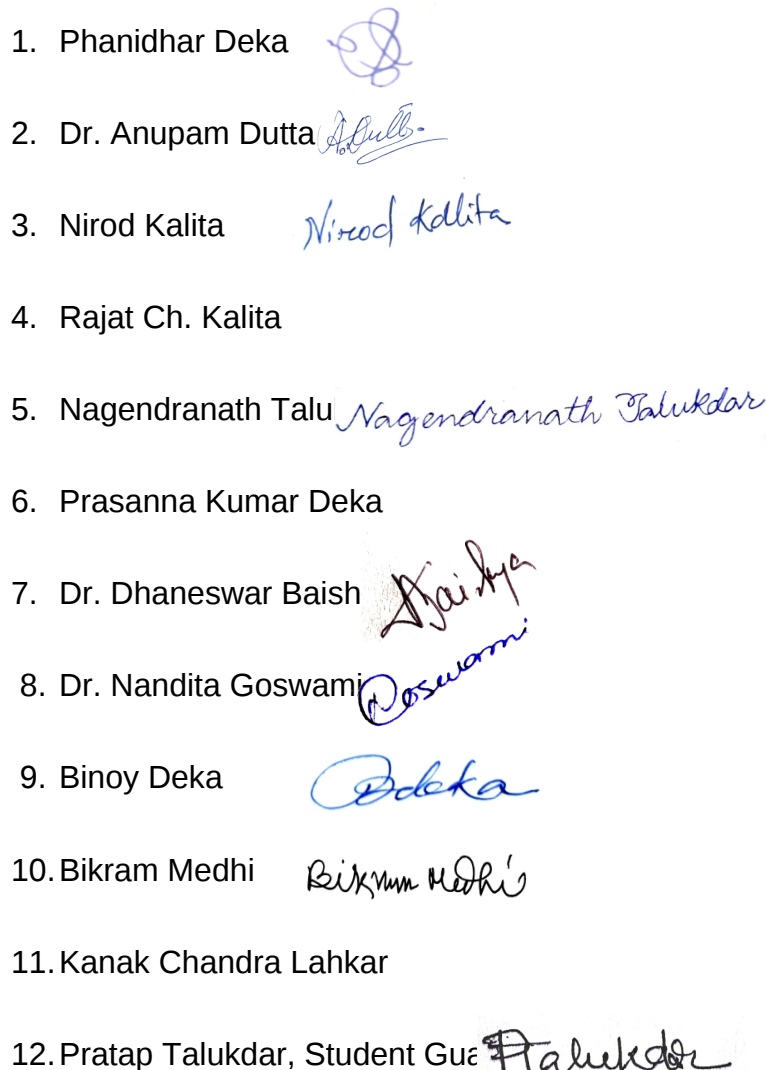 1. Phanidhar Deka
2. Dr. Anupam Dutta A. Dutta.
3. Nirod Kalita Nirod Kalita
4. Rajat Ch. Kalita
5. Nagendranath Talu Nagendranath Talukdar
6. Prasanna Kumar Deka
7. Dr. Dhaneswar Baish DBaishya
8. Dr. Nandita Goswami Goswami
9. Binoy Deka Bdeka
10. Bikram Medhi Bikram Medhi
11. Kanak Chandra Lahkar
12. Pratap Talukdar, Student Gua PTalukdar